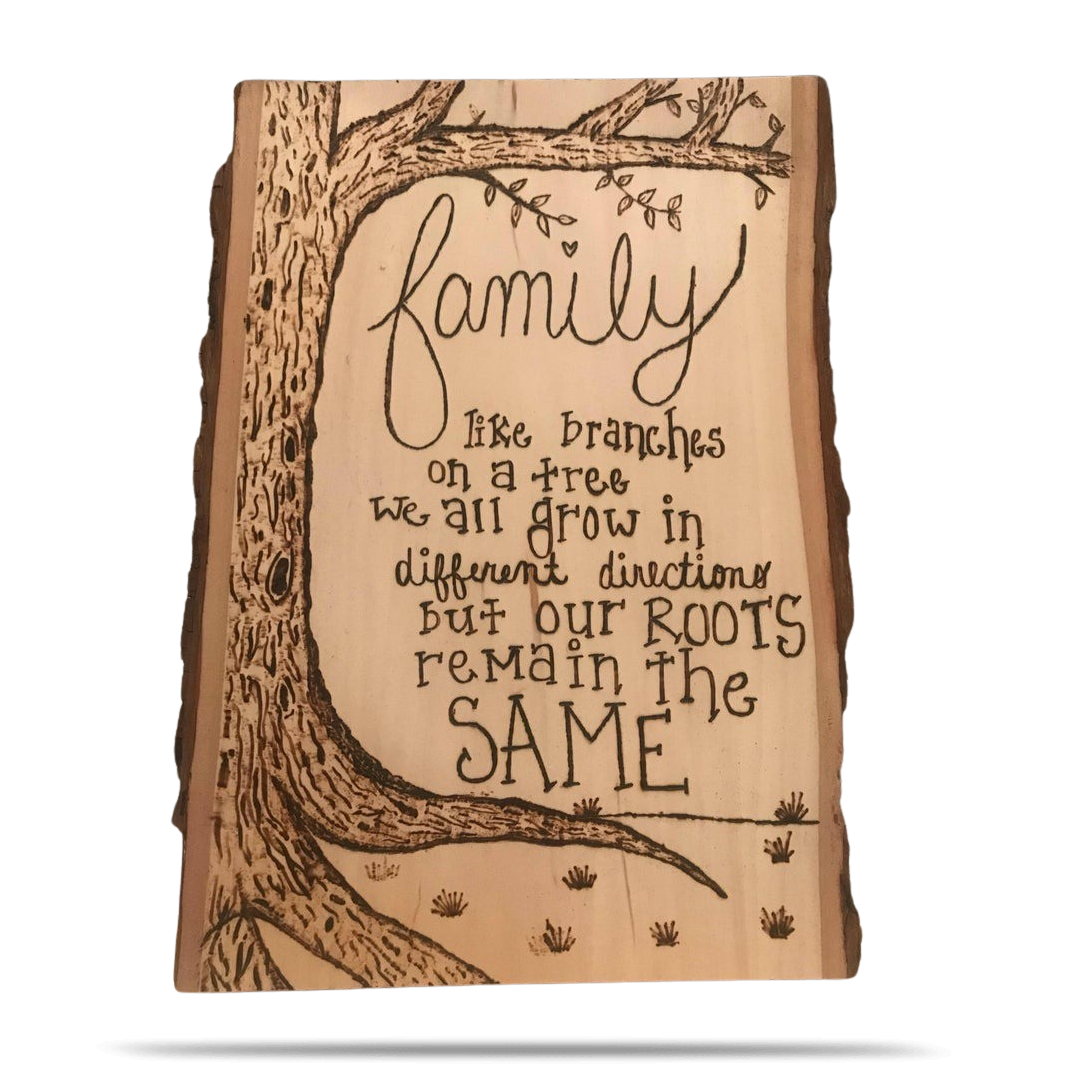 family
like branches
on a tree
we all grow in
different directions
but our ROOTS
remain the
SAME